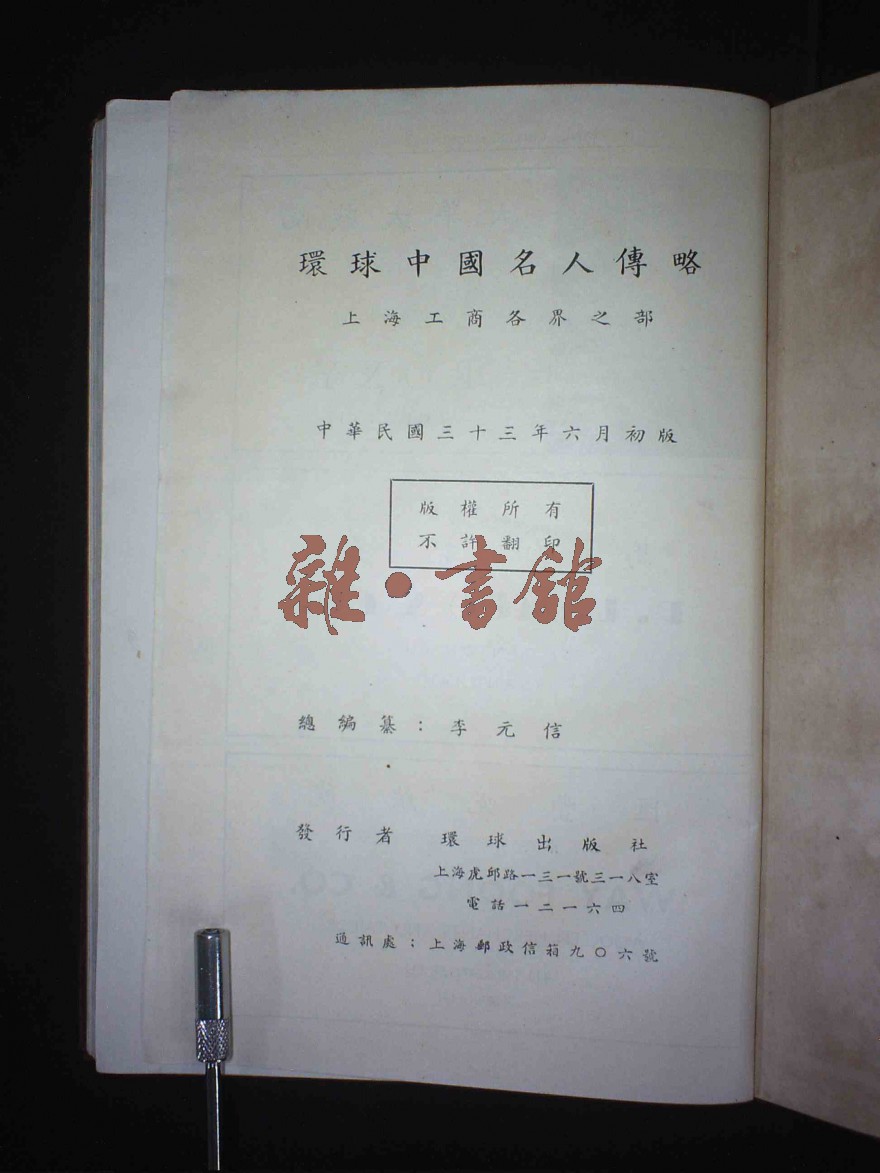 環球中國名人傳略
上海工商各界之部
中華民國三十三年六月初版
版權所有
不許翻印
雜·書館
總編纂：李元信
發行者 環球出版社
上海虎邱路一三一號三一八室
電話一二一六四
通訊處：上海郵政信箱九〇六號